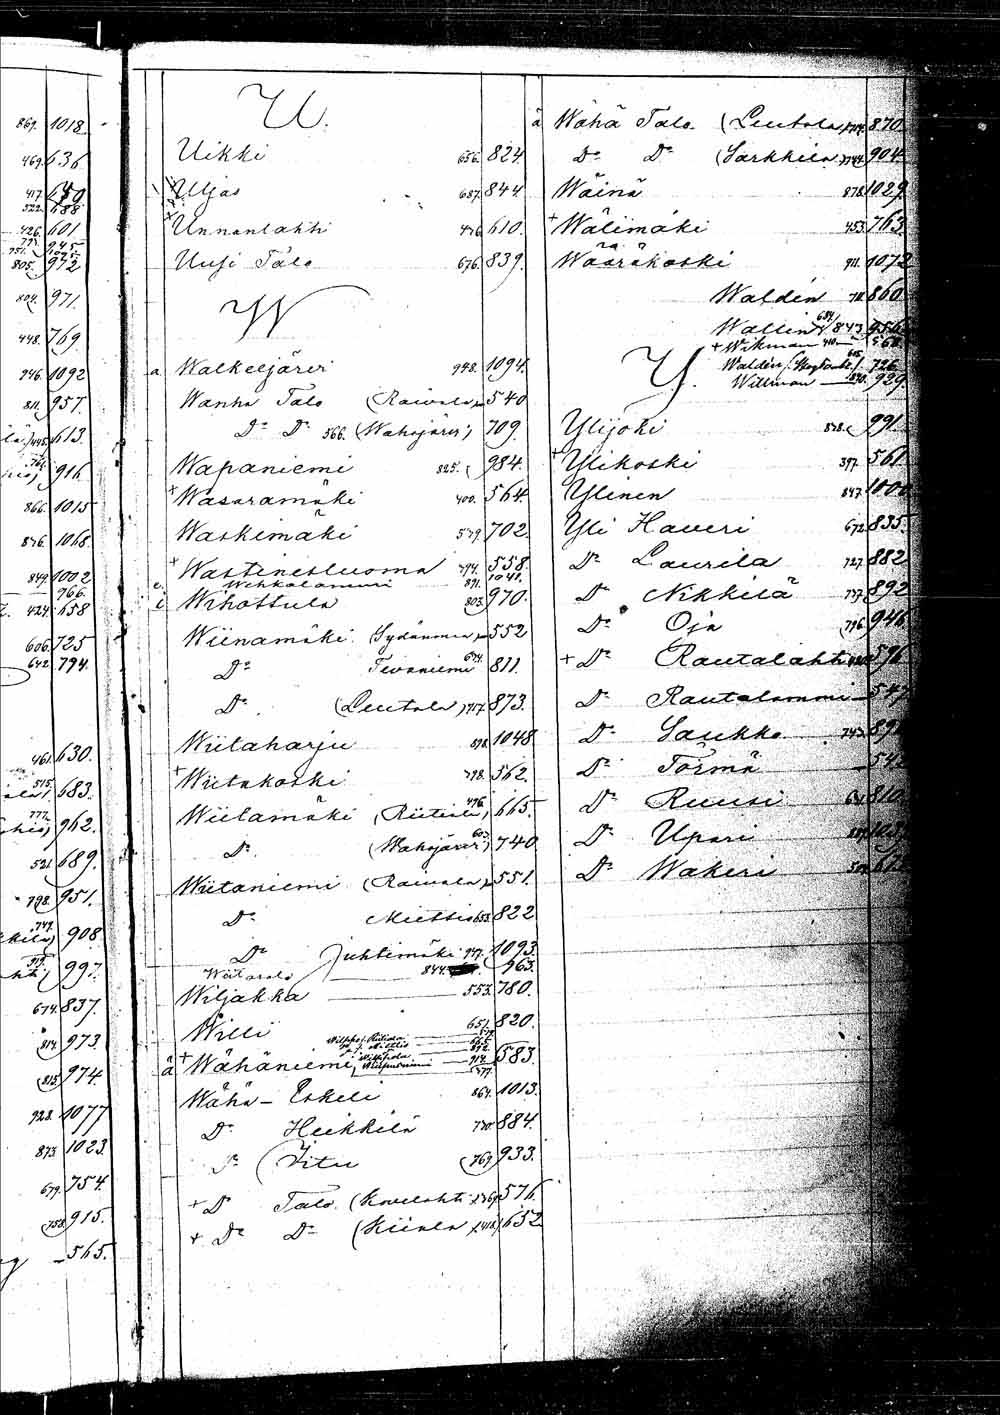 869. 1018.
469. 636
417. 650
522. 688
426. 601
771. 945
751. 1025
805. 972
804. 971.
448. 769
946. 1092
811. 957.
445. 613.
916.
866. 1015
846. 1068.
849. 1002
766.
424. 658
606. 725
642. 794.
461. 630.
515. 683.
777. 962.
521. 689.
798. 951.
749. 908
919. 997.
674. 837.
814. 973.
815. 974.
928. 1077
873. 1023.
679. 754.
758. 915.
565.
U.
Uikki 656. 824.
Uljas 687. 844.
+ Unnanlahti 436. 610.
Uusi Talo 676. 839.
W
a Walkeejärvi 948. 1094.
Wanha Talo (Raivala) 540
Do Do 566. (Wahojärvi) 709.
Wapaniemi 825. 984.
+ Wasaramäki 400. 564.
Waskimäki 579. 702.
+ Wastinesluoma 394. 558.
e. Wehkalammi 891. 1041.
i Wihottula 803. 970.
Wiinamäki Sydänmaa 552
Do Tevaniemi 674. 811.
Do (Leutola) 717. 873.
Wiitaharju 898. 1048
+ Wiitakoski 398. 562.
Wiitamäki (Riitiala) 476. 665.
Do (Wahojärvi) 603. 740
Wiitaniemi (Raivala) 551.
Do Miettis 653. 822
Do Juhtimäki 947. 1093.
Wiitasalo 844. 963.
Wiljakka 553. 780.
Willi 651. 820.
ä + Wähäniemi 583.
Wähä - Eskeli 864. 1013.
Do Heikkilä 730 884.
Do Iitu 767. 933.
+ Do Talo (Kovelahti) 576.
+ Do Do (Kiiala) 418. 652
ä Wähä Talo (Leutola) 714. 870.
Do Do (Sarkkila) 744. 904.
Wäinä 878. 1029.
+ Wälimäki 453. 763.
Wääräkoski 911. 1072
Waldén 711. 860.
Wallin 689. 843 856
+ Wikman 410. 560.
Waldén 605. 726.
Willman 870. 929.
Y.
Ylijoki 838. 991.
+ Ylikoski 397. 561.
Ylinen 847. 1000
Yli Haveri 672. 835.
Do Laurila 727. 882
Do Nikkilä 737. 892
Do Oja 796. 946
+ Do Rautalahti 596
Do Rautalammi 547
Do Saukko 743. 89
Do Törmä 54
Do Ruusi 641. 810
Do Upari
Do Wakeri 504. 612